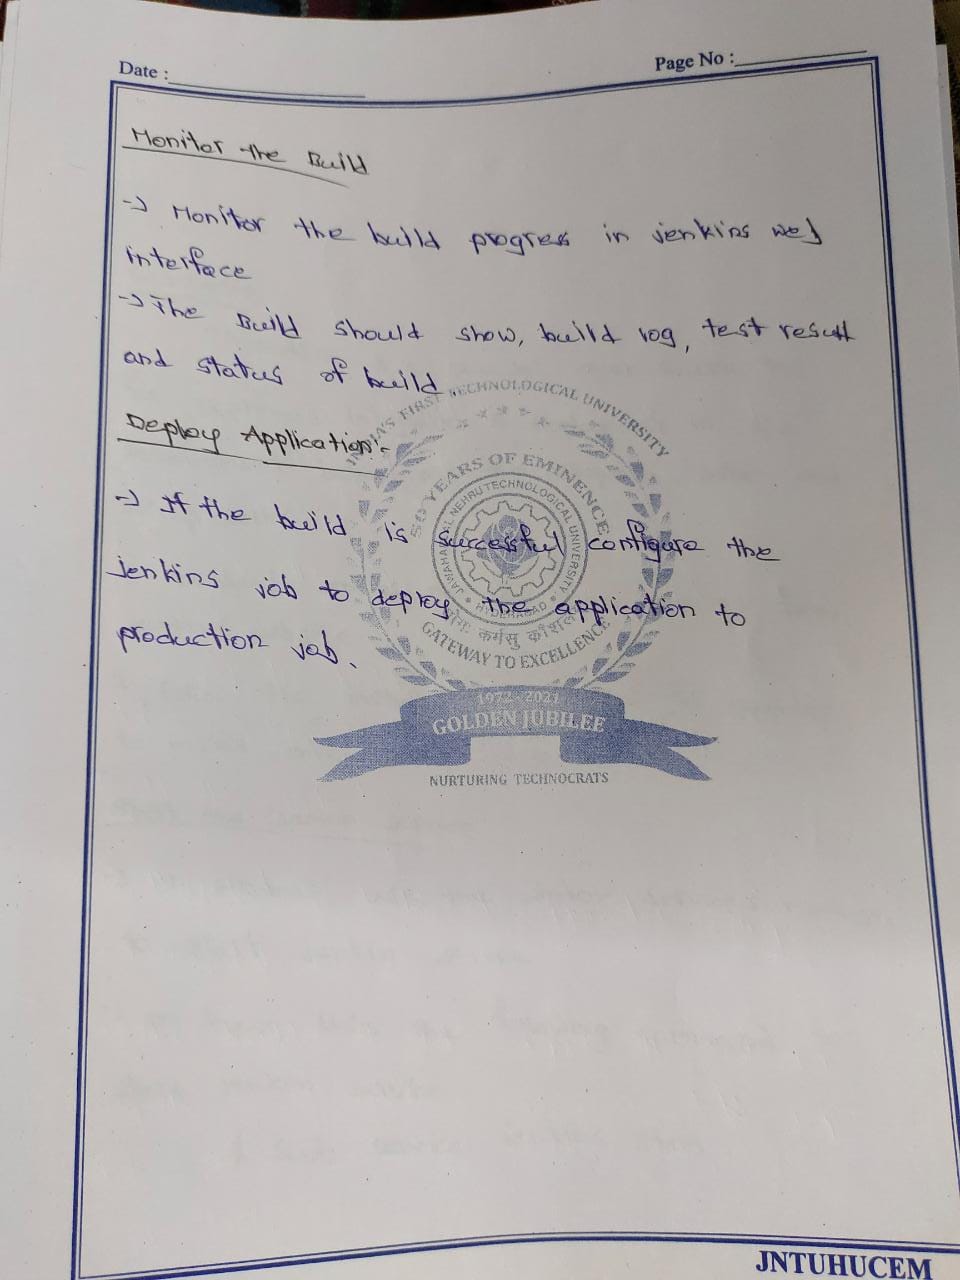 Date :
Page No :
Monitor the Build
-> Monitor the build progress in jenkins web
interface
-> The Build should show, build log, test result
and status of build.
Deploy Application:-
-> If the build is successful configure the
jenkins job to deploy the application to
production job.
INDIA'S FIRST TECHNOLOGICAL UNIVERSITY
50 YEARS OF EMINENCE
JAWAHARLAL NEHRU TECHNOLOGICAL UNIVERSITY
HYDERABAD
योगः कर्मसु कौशलम्
GATEWAY TO EXCELLENCE
1972 - 2021
GOLDEN JUBILEE
NURTURING TECHNOCRATS
JNTUHUCEM